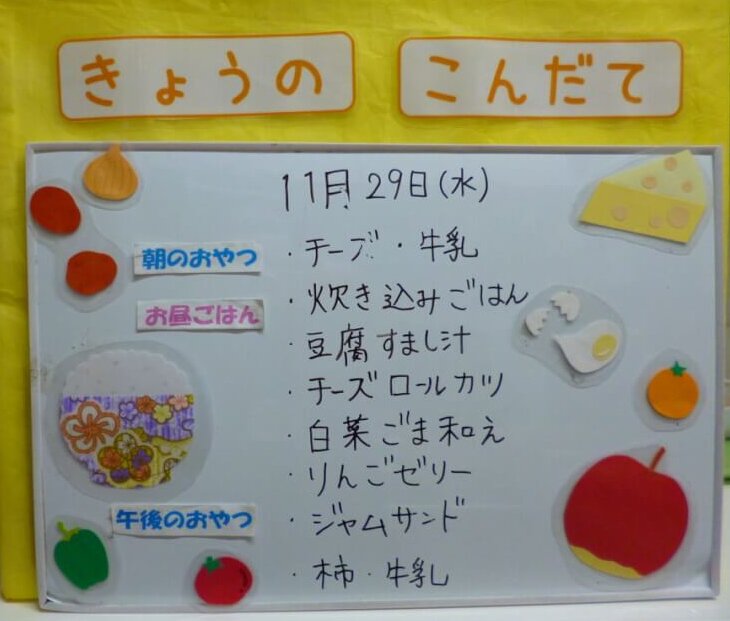 きょうの こんだて
11月29日(水)
朝のおやつ ・チーズ・牛乳
お昼ごはん ・炊き込みごはん
・豆腐すまし汁
・チーズロールカツ
・白菜ごま和え
・りんごゼリー
午後のおやつ ・ジャムサンド
・柿・牛乳